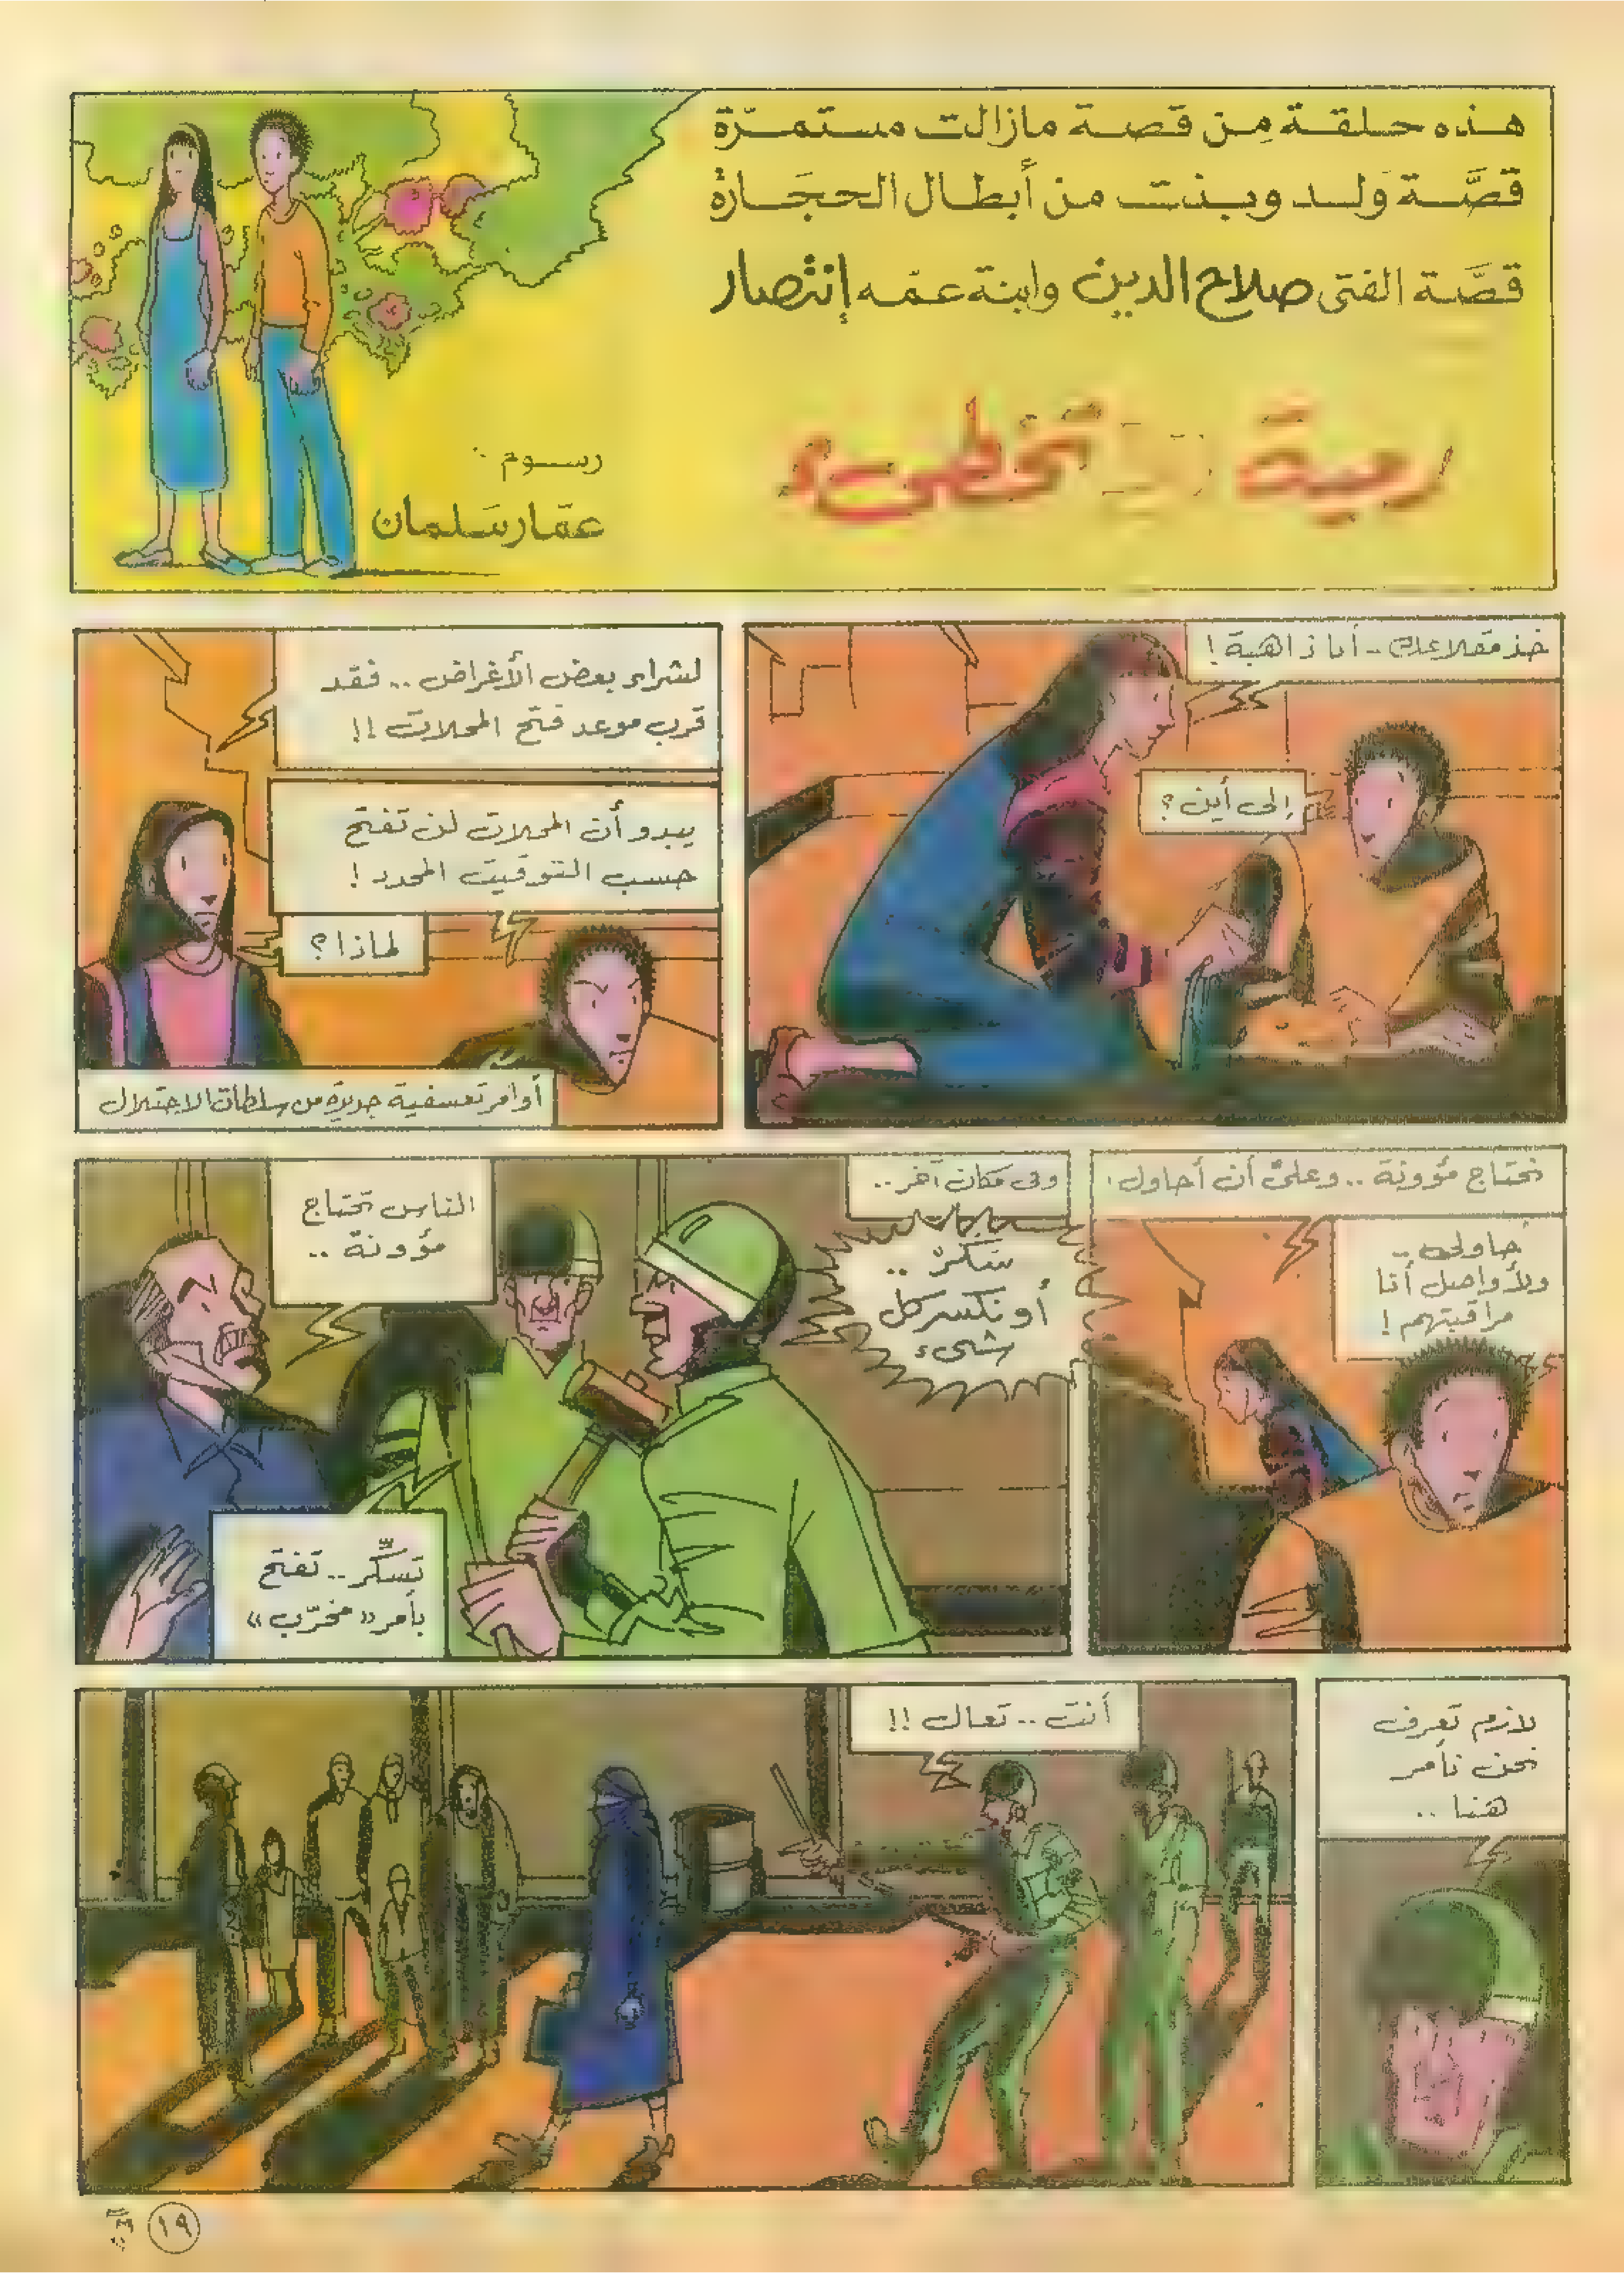 هذه حلقة مِن قصة مازالت مستمرّة
قصَّة وَلد وبنت من أبطال الحجَارة
قصَّة الفتى صلاح الدين وابنة عمّه إنتصار
رمية لا تخطىء
رسوم :
عمّار سَلمان
خذ مقلاعك .. أنا ذاهبة !
إلى أين ؟
لشراء بعض الأغراض .. فقد
قرب موعد فتح المحلات !!
يبدو أن المحلات لن تفتح
حسب التوقيت المحدد !
لماذا ؟
أوامر تعسفية جديدة من سلطات الاحتلال
نحتاج مؤونة .. وعليّ أن أحاول !
حاولي ..
ولأواصل أنا
مراقبتهم !
وفى مكان آخر ..
سَكّر ..
أو نكسر كل
شىء
الناس تحتاج
مؤونة ..
تسكّر .. تفتح
بأمر « مخرّب »
لازم تعرف
نحن نأمر
هنا ..
أنت .. تعال !!
١٩